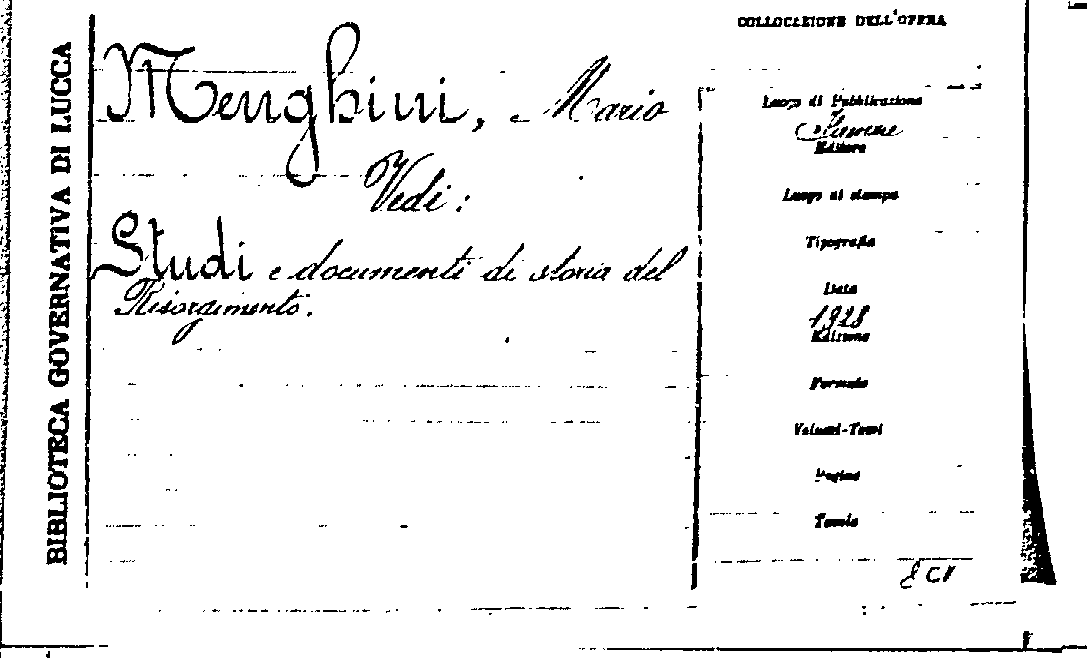 BIBLIOTECA GOVERNATIVA DI LUCCA
Menghini, Mario
Vedi:
Studi e documenti di storia del
Risorgimento.
COLLOCAZIONE DELL'OPERA
Luogo di Pubblicazione
Firenze
Editore
Luogo di stampa
Tipografia
Data
1928
Edizione
Formato
Volumi-Tomi
Pagine
Tavole